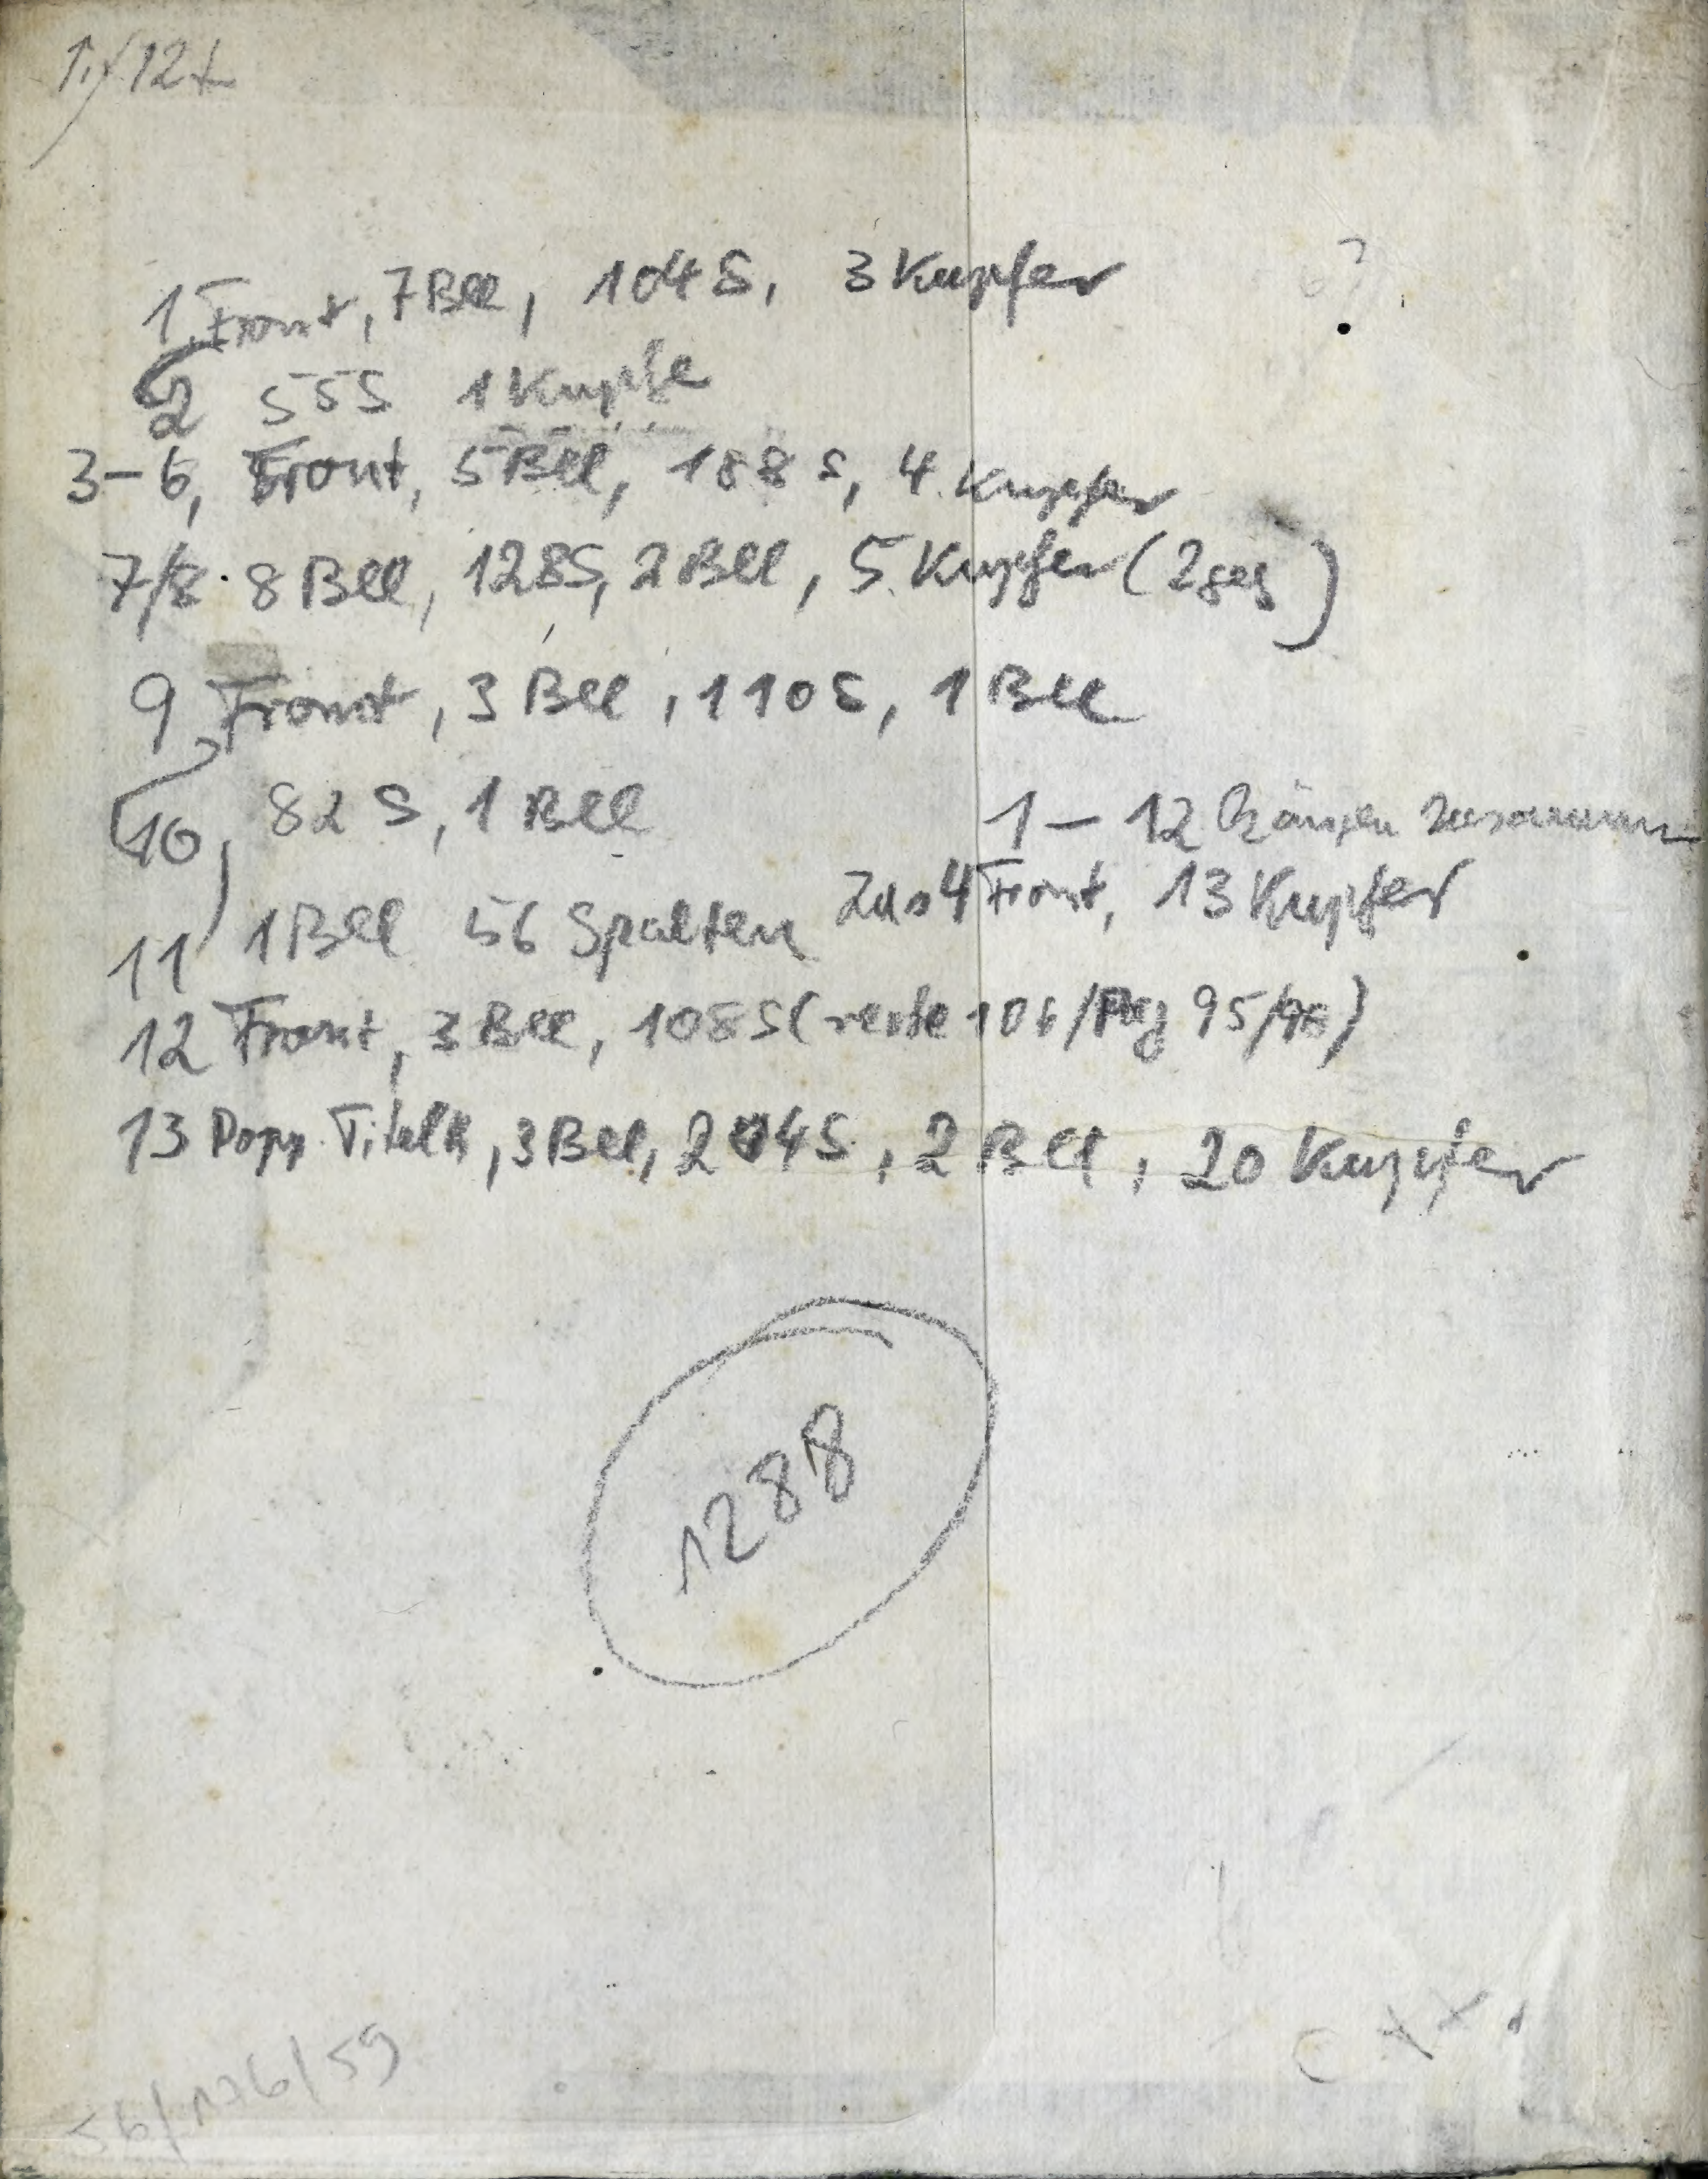 1 Front, 7 Bll, 104 S, 3 Kupfer
2 55S 1 Kupfe
3-6, Front, 5 Bll, 188 S, 4 Kupfer
7/8. 8 Bll, 128S, 2 Bll, 5 Kupfer (2 gef)
9, Front, 3 Bll, 110 S, 1 Bll
10, 82 S, 1 Bll
1 - 12 zusammen
11 1 Bll 56 Spalten Zus 4 Front, 13 Kupfer
12 Front, 3 Bll, 108 S (recte 106/Pag 95/96)
13 Dopp. Titelk, 3 Bll, 204 S, 2 Bll, 20 Kupfer
1288
56/176/59